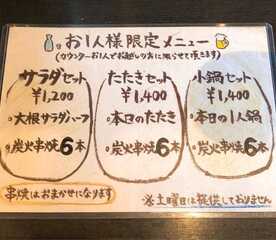 お1人様限定メニュー
(カウンターお1人でお越しの方に限らせて頂きます)
サラダセット
¥1,200
大根サラダハーフ
炭火串焼6本
たたきセット
¥1,400
本日のたたき
炭火串焼6本
小鍋セット
¥1,400
本日の1人鍋
炭火串焼6本
串焼はおまかせになります
※土曜日は提供しておりません